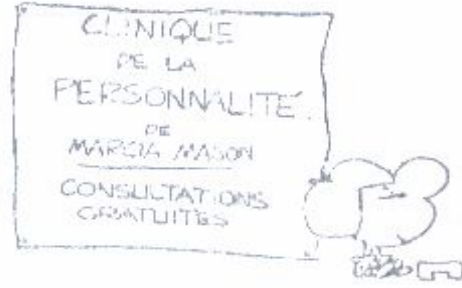 CLINIQUE
DE LA
PERSONNALITÉ
DE
MARCIA MASON
CONSULTATIONS
GRATUITES